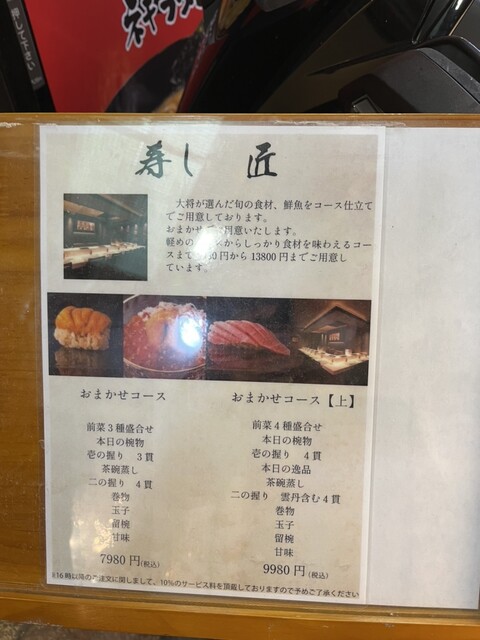 押して下さい
寿し 匠
大将が選んだ旬の食材、鮮魚をコース仕立て
でご用意しております。
おまかせ ご用意いたします。
軽めの からしっかり食材を味わえるコー
スまで 円から13800円までご用意し
ています。
おまかせコース
前菜3種盛合せ
本日の椀物
壱の握り 3貫
茶碗蒸し
二の握り 4貫
巻物
玉子
留椀
甘味
7980円(税込)
おまかせコース【上】
前菜4種盛合せ
本日の椀物
壱の握り 4貫
本日の逸品
茶碗蒸し
二の握り 雲丹含む4貫
巻物
玉子
留椀
甘味
9980円(税込)
※16時以降のご注文に関しまして、10%のサービス料を頂戴しておりますので予めご了承ください